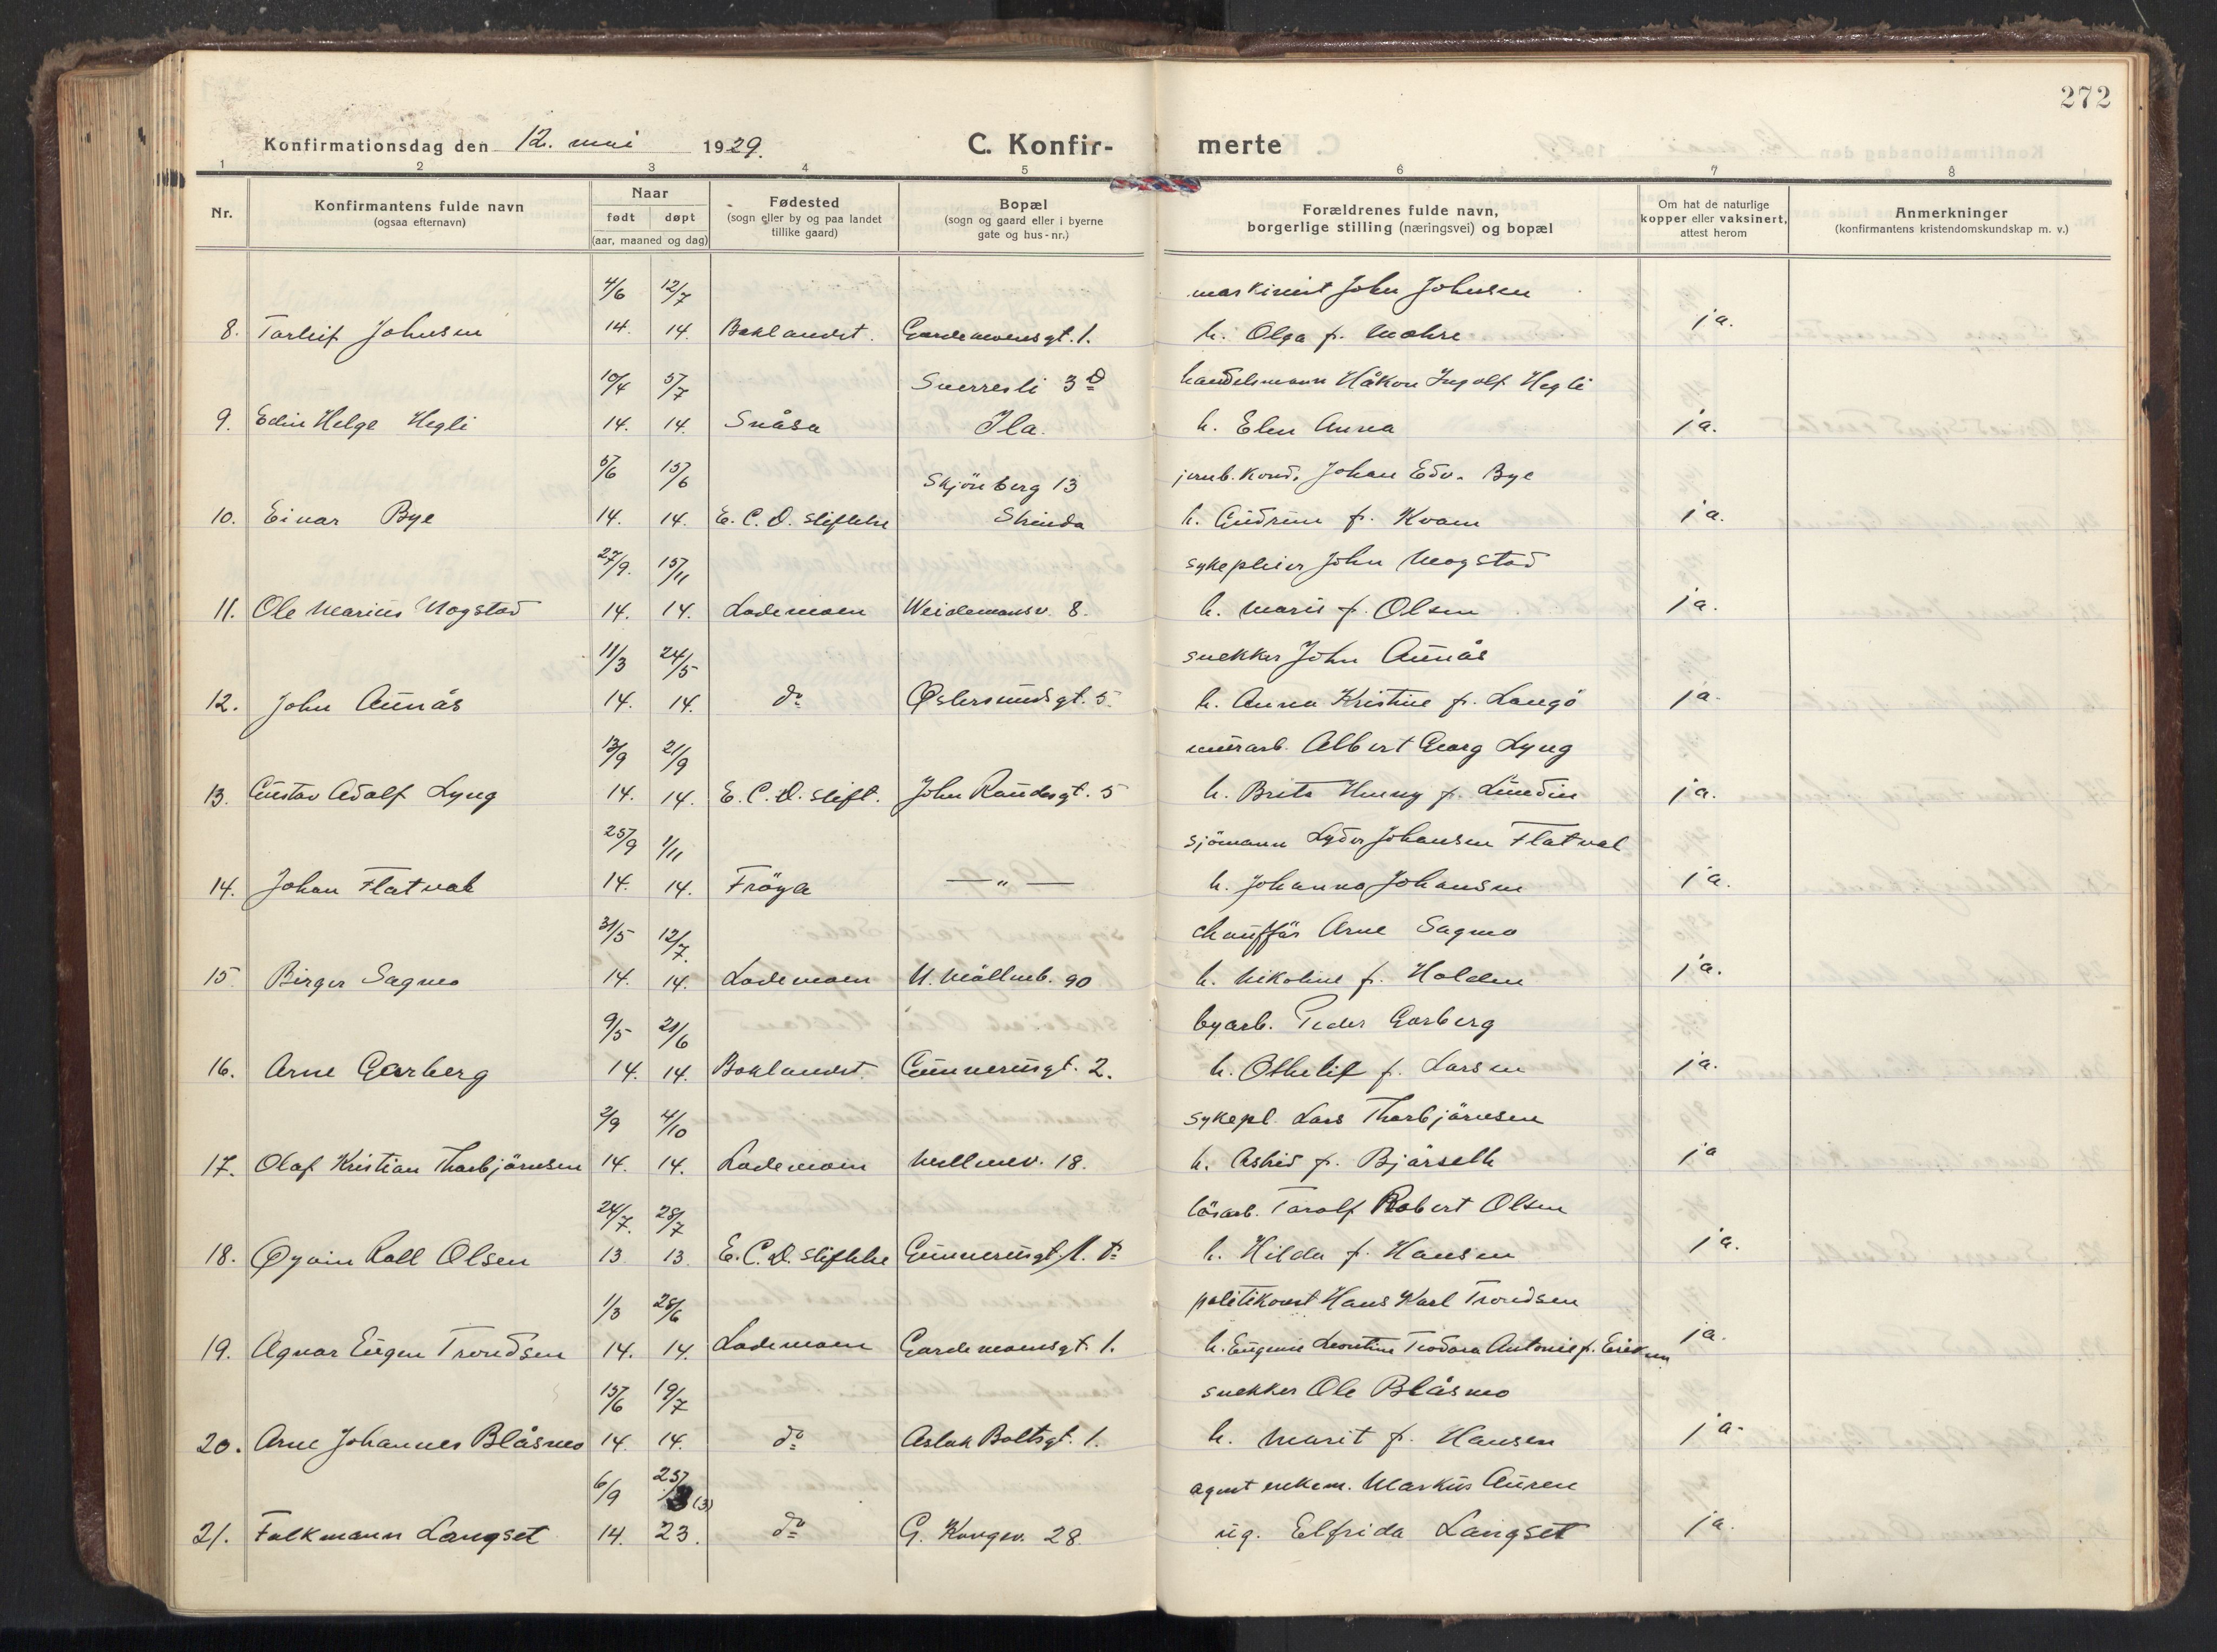 272
Konfirmationsdag den 12. mai 1929.
C. Konfirmerte
1 2 3 4 5 6 7 8
Nr.
Konfirmantens fulde navn
(ogsaa efternavn)
Naar
født døpt
(aar, maaned og dag)
Fødested
(sogn eller by og paa landet
tillike gaard)
Bopæl
(sogn og gaard eller i byerne
gate og hus-nr.)
Forældrenes fulde navn,
borgerlige stilling (næringsvei) og bopæl
Om hat de naturlige
kopper eller vaksinert,
attest herom
Anmerkninger
(konfirmantens kristendomskundskap m. v.)
4/6 12/7 maskinist John Johnsen
8. Torleif Johnsen 14. 14. Baklandet. Gardemoensgt. 1. h. Olga f. Mohre ja.
10/4 5/7 Sverresli 3 D handelsmann Håkon Ingolf Hegli
9. Edin Helge Hegli 14. 14. Snåsa Ila. h. Elen Anna ja.
5/6 15/6 Skjönberg 13 jernb.kond. Johan Edv. Bye
10. Einar Bye 14. 14. E. C. D. stiftelse Strinda h. Gudrun f. Kvam ja.
27/9. 15/11 sykepleier John Mogstad
11. Ole Marius Mogstad 14. 14. Lademoen Weidemansv. 8. h. Marie f. Olsen ja.
11/3 24/5 snekker John Aunås
12. John Aunås 14. 14. do Østersundsgt. 5. h. Anna Kristine f. Langö ja.
13/9 21/9 murarb. Albert Georg Lyng
13. Gustav Adolf Lyng 14. 14. E. C. D. stift. John Raudesgt. 5 h. Brita Henny f. Lundin ja.
25/9 1/11 sjömann Lyder Johansen Flatval
14. Johan Flatval 14. 14. Fröya — " — h. Johanna Johansen ja.
31/5 12/7 chaufför Arne Sagmo
15 Birger Sagmo 14. 14. Lademoen N. Möllenb. 90 h. Nikoline f. Holden ja.
9/5 21/6 byarb. Peder Garberg
16. Arne Garberg 14. 14. Baklandet Gunnerusgt. 2. h. Othelie f. Larsen ja.
2/9 4/10 sykepl. Lars Thorbjörnsen
17. Olaf Kristian Thorbjörnsen 14. 14. Lademoen Mellemv. 18. h. Astrid f. Bjørseth ja
24/7. 28/7 lösarb. Torolf Robert Olsen
18. Øyvin Roll Olsen 13. 13. E. C. D. stiftelse Gunnerusgt. 1. b h. Hilda f. Hansen ja.
1/3 28/6 politikonst Hans Karl Trondsen
19. Agnar Eugen Trondsen 14. 14. Lademoen Gardemoensgt. 1. h. Eugenie Leontine Teodora Antonie f. Eriksen ja.
15/6 19/7 snekker Ole Blåsmo
20. Arne Johannes Blåsmo 14. 14. do Aslak Boltsgt. 1. h. Marit f. Hansen ja.
6/9 25/3 (3) agent enkem. Markus Auren
21. Falkmann Langset 14. 23. do G. Kongev. 28. ug. Elfrida Langset ja.